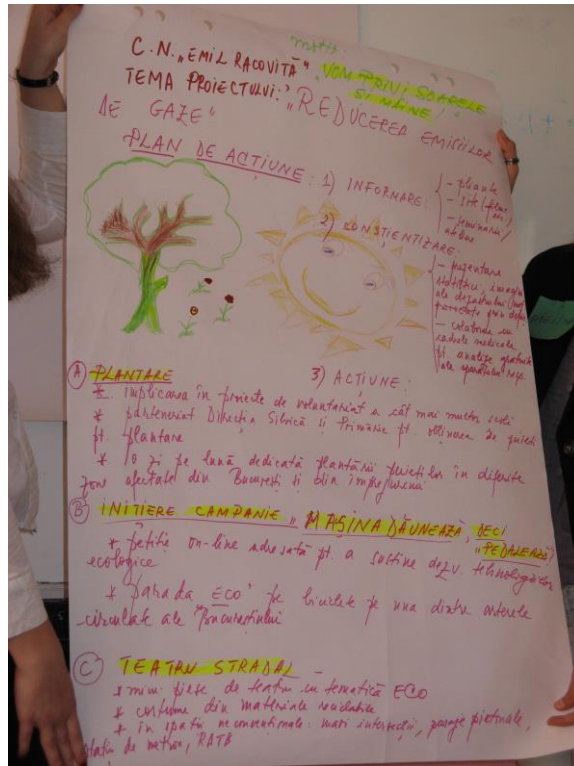 C.N. „EMIL RACOVITĂ"
motto:
„VOM PRIVI SOARELE
ȘI MÂINE!
TEMA PROIECTULUI: „REDUCEREA EMISIILOR
DE GAZE"
PLAN DE ACȚIUNE: 1) INFORMARE:
- pliante
- site / filme
- seminarii /
2) CONȘTIENTIZARE:
- prezentare
statistici, imagini
ale dezastrului
prin
- colaborare cu
medicale
pt. analize gratuite
ale aparatului resp.
3) ACȚIUNE:
A PLANTARE
* implicarea în proiecte de voluntariat a cât mai multor școli
* parteneriat Direcția Silvică și Primărie pt. obținerea de puieți
pt. plantare
* o zi pe lună dedicată plantării puieților în diferite
zone afectate din București și din împrejurimi
B INIȚIERE CAMPANIE „MAȘINA DĂUNEAZĂ, DECI
„PEDALEAZĂ!
* petiție on-line adresată pt. a susține dezv. tehnologiilor
ecologice
* parada ECO pe biciclete pe una dintre arterele
circulate ale Bucureștiului
C TEATRU STRADAL
* mini piese de teatru cu tematică ECO
* costume din materiale reciclabile
* în spații neconvenționale: mari intersecții, pasaje pietonale,
stații de metrou, RATB